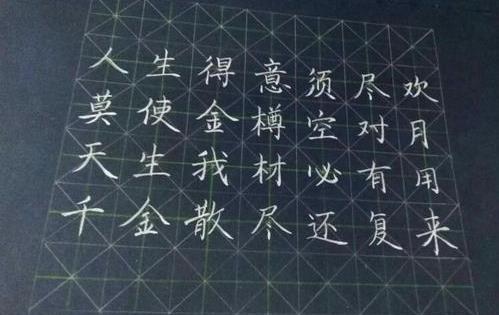 人生得意须尽欢
莫使金樽空对月
天生我材必有用
千金散尽还复来